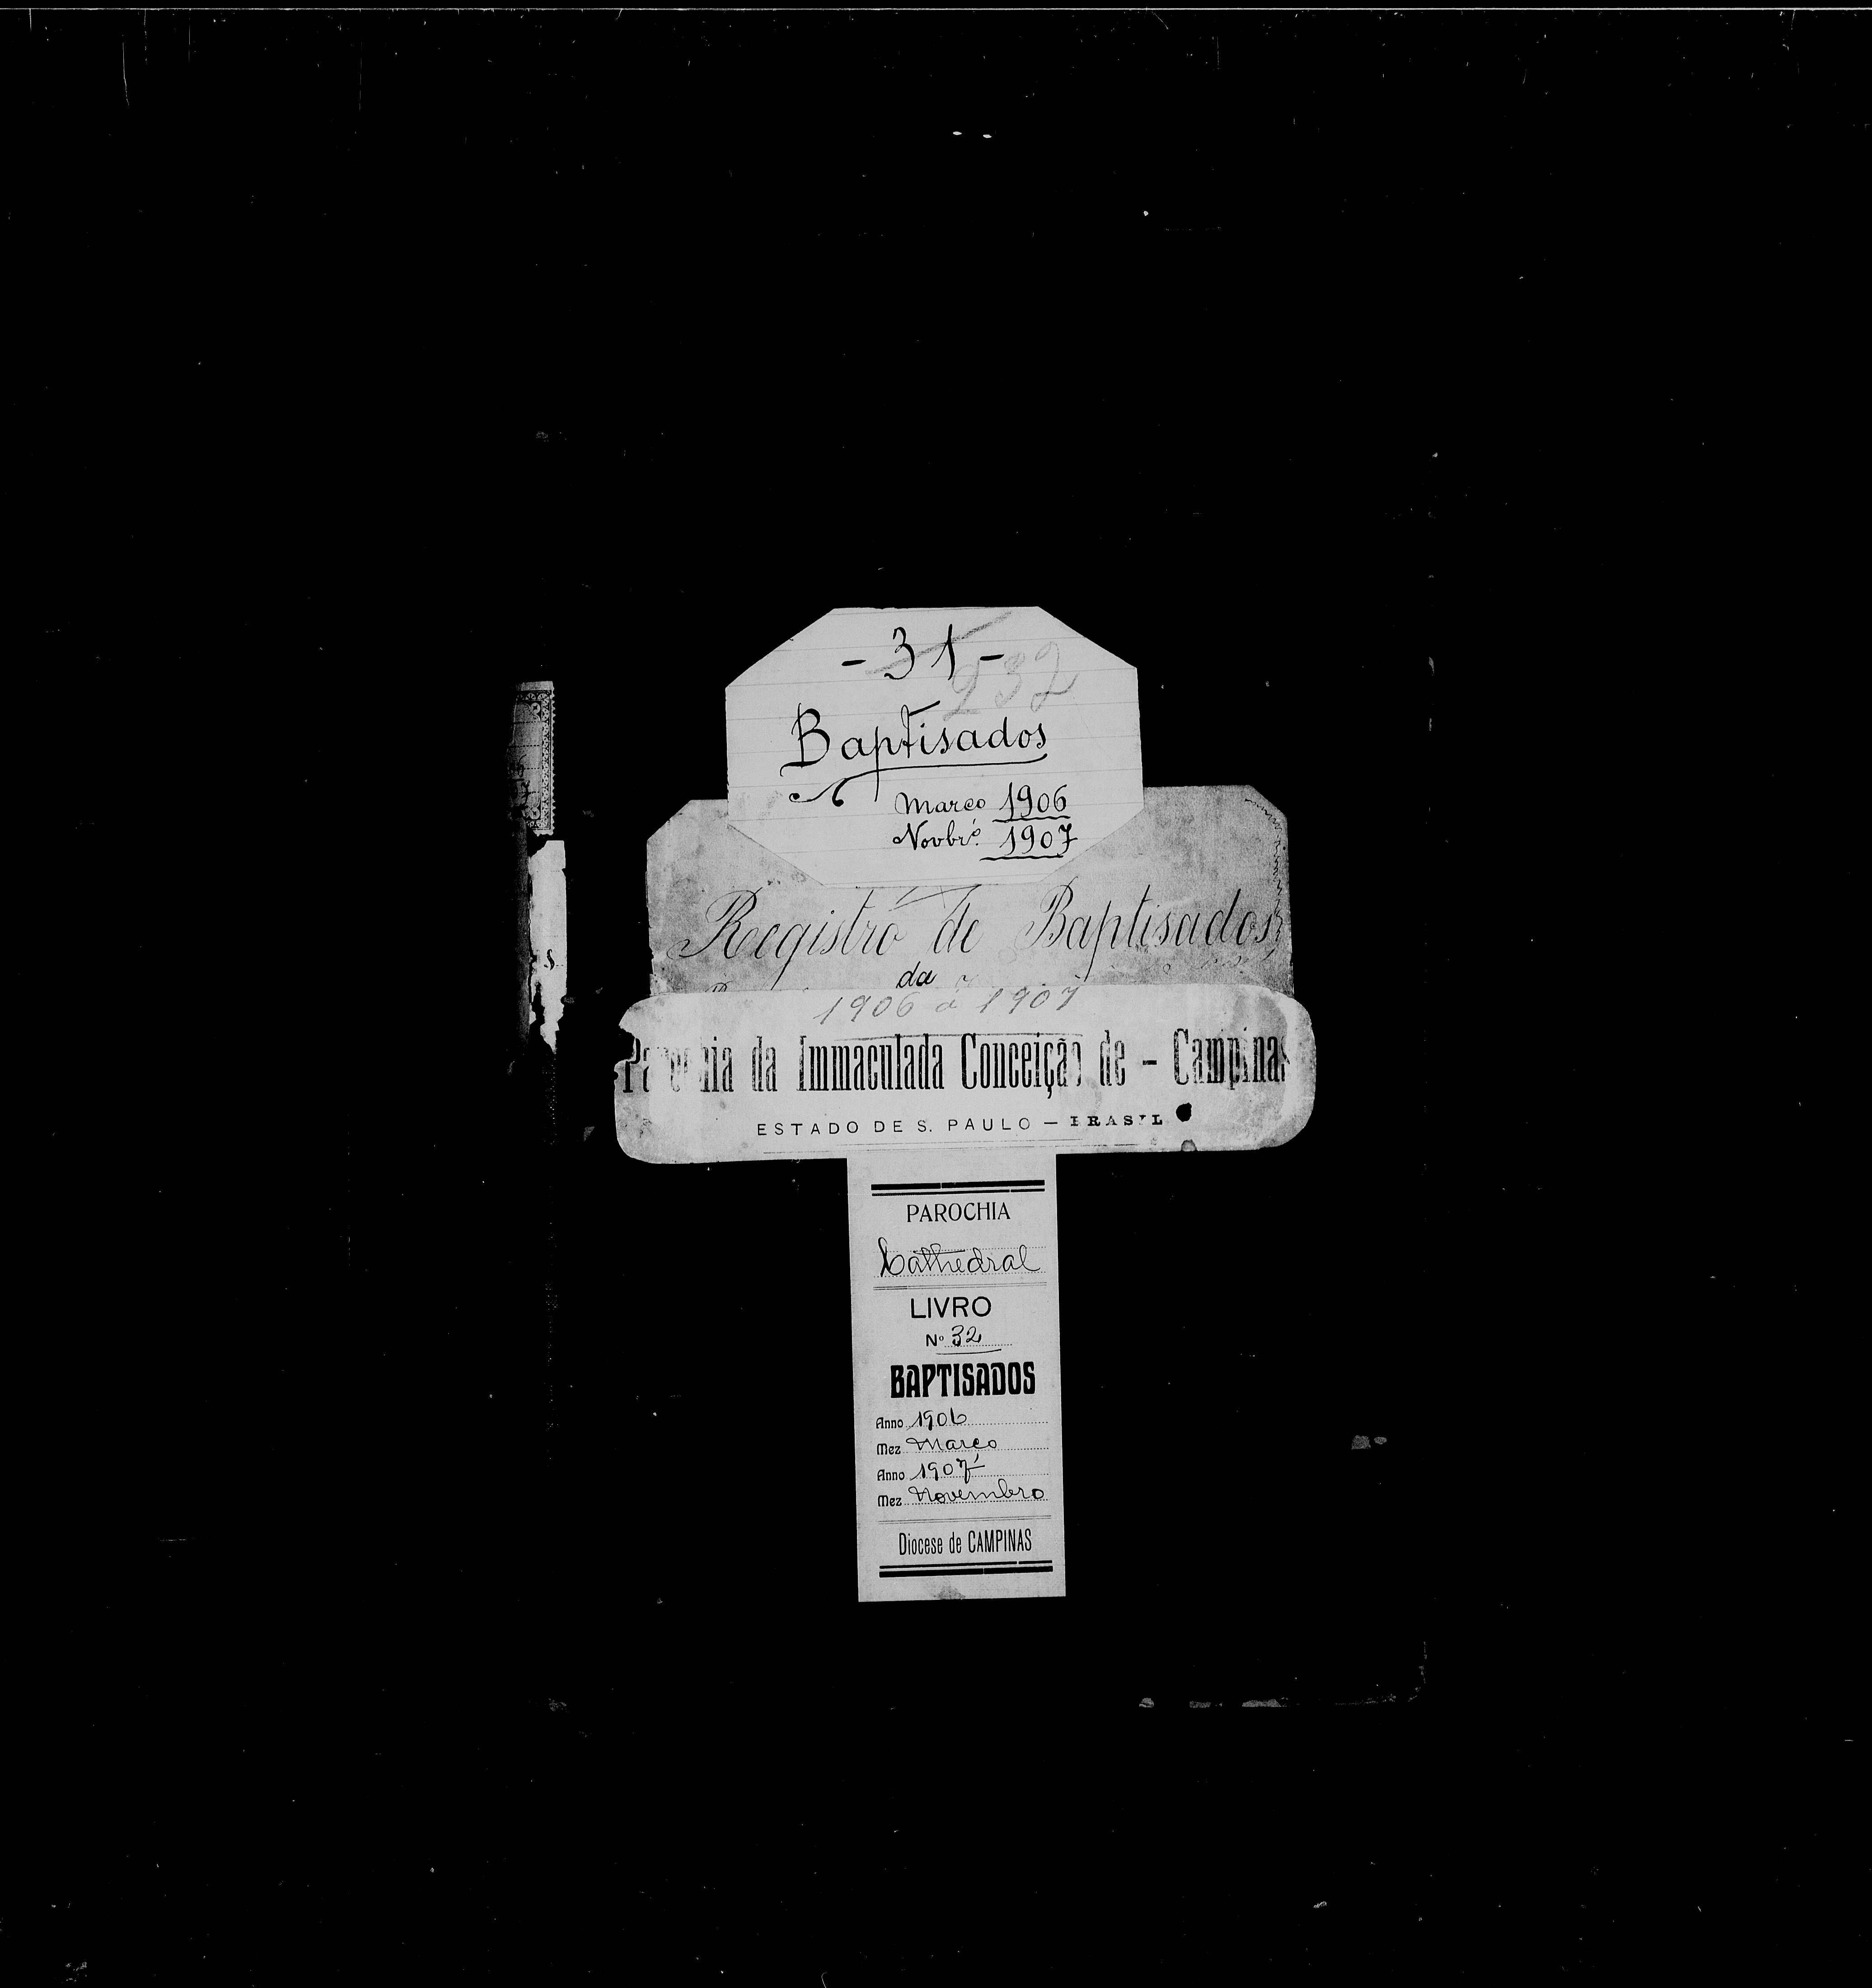 - 31 -
232
Baptisados
Março 1906
Novbrº. 1907
Registro de Baptisados
da
1906 a 1907
Parochia da Immaculada Conceição de - Campinas
ESTADO DE S. PAULO — BRASIL
PAROCHIA
Cathedral
LIVRO
Nº 32
BAPTISADOS
Anno 1906
Mez Março
Anno 1907
Mez Novembro
Diocese de CAMPINAS